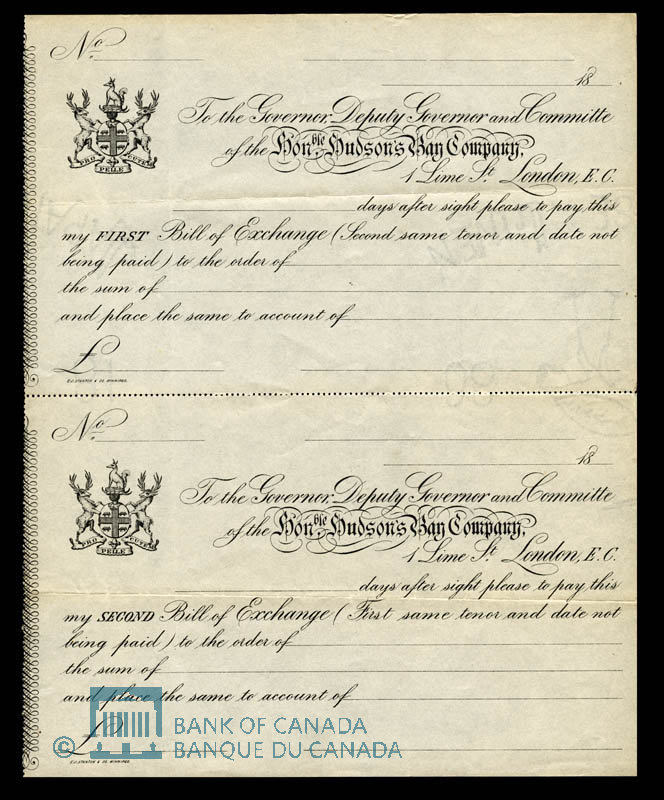 No.
18
To the Governor, Deputy Governor and Committe
of the Honble. Hudson's Bay Company,
1 Lime St. London, E.C.
PRO PELLE CUTEM
days after sight please to pay this
my FIRST Bill of Exchange (Second same tenor and date not
being paid) to the order of
the sum of
and place the same to account of
£
No.
18
To the Governor, Deputy Governor and Committe
of the Honble. Hudson's Bay Company,
1 Lime St. London, E.C.
PRO PELLE CUTEM
days after sight please to pay this
my SECOND Bill of Exchange (First same tenor and date not
being paid) to the order of
the sum of
and place the same to account of
£
© BANK OF CANADA
BANQUE DU CANADA